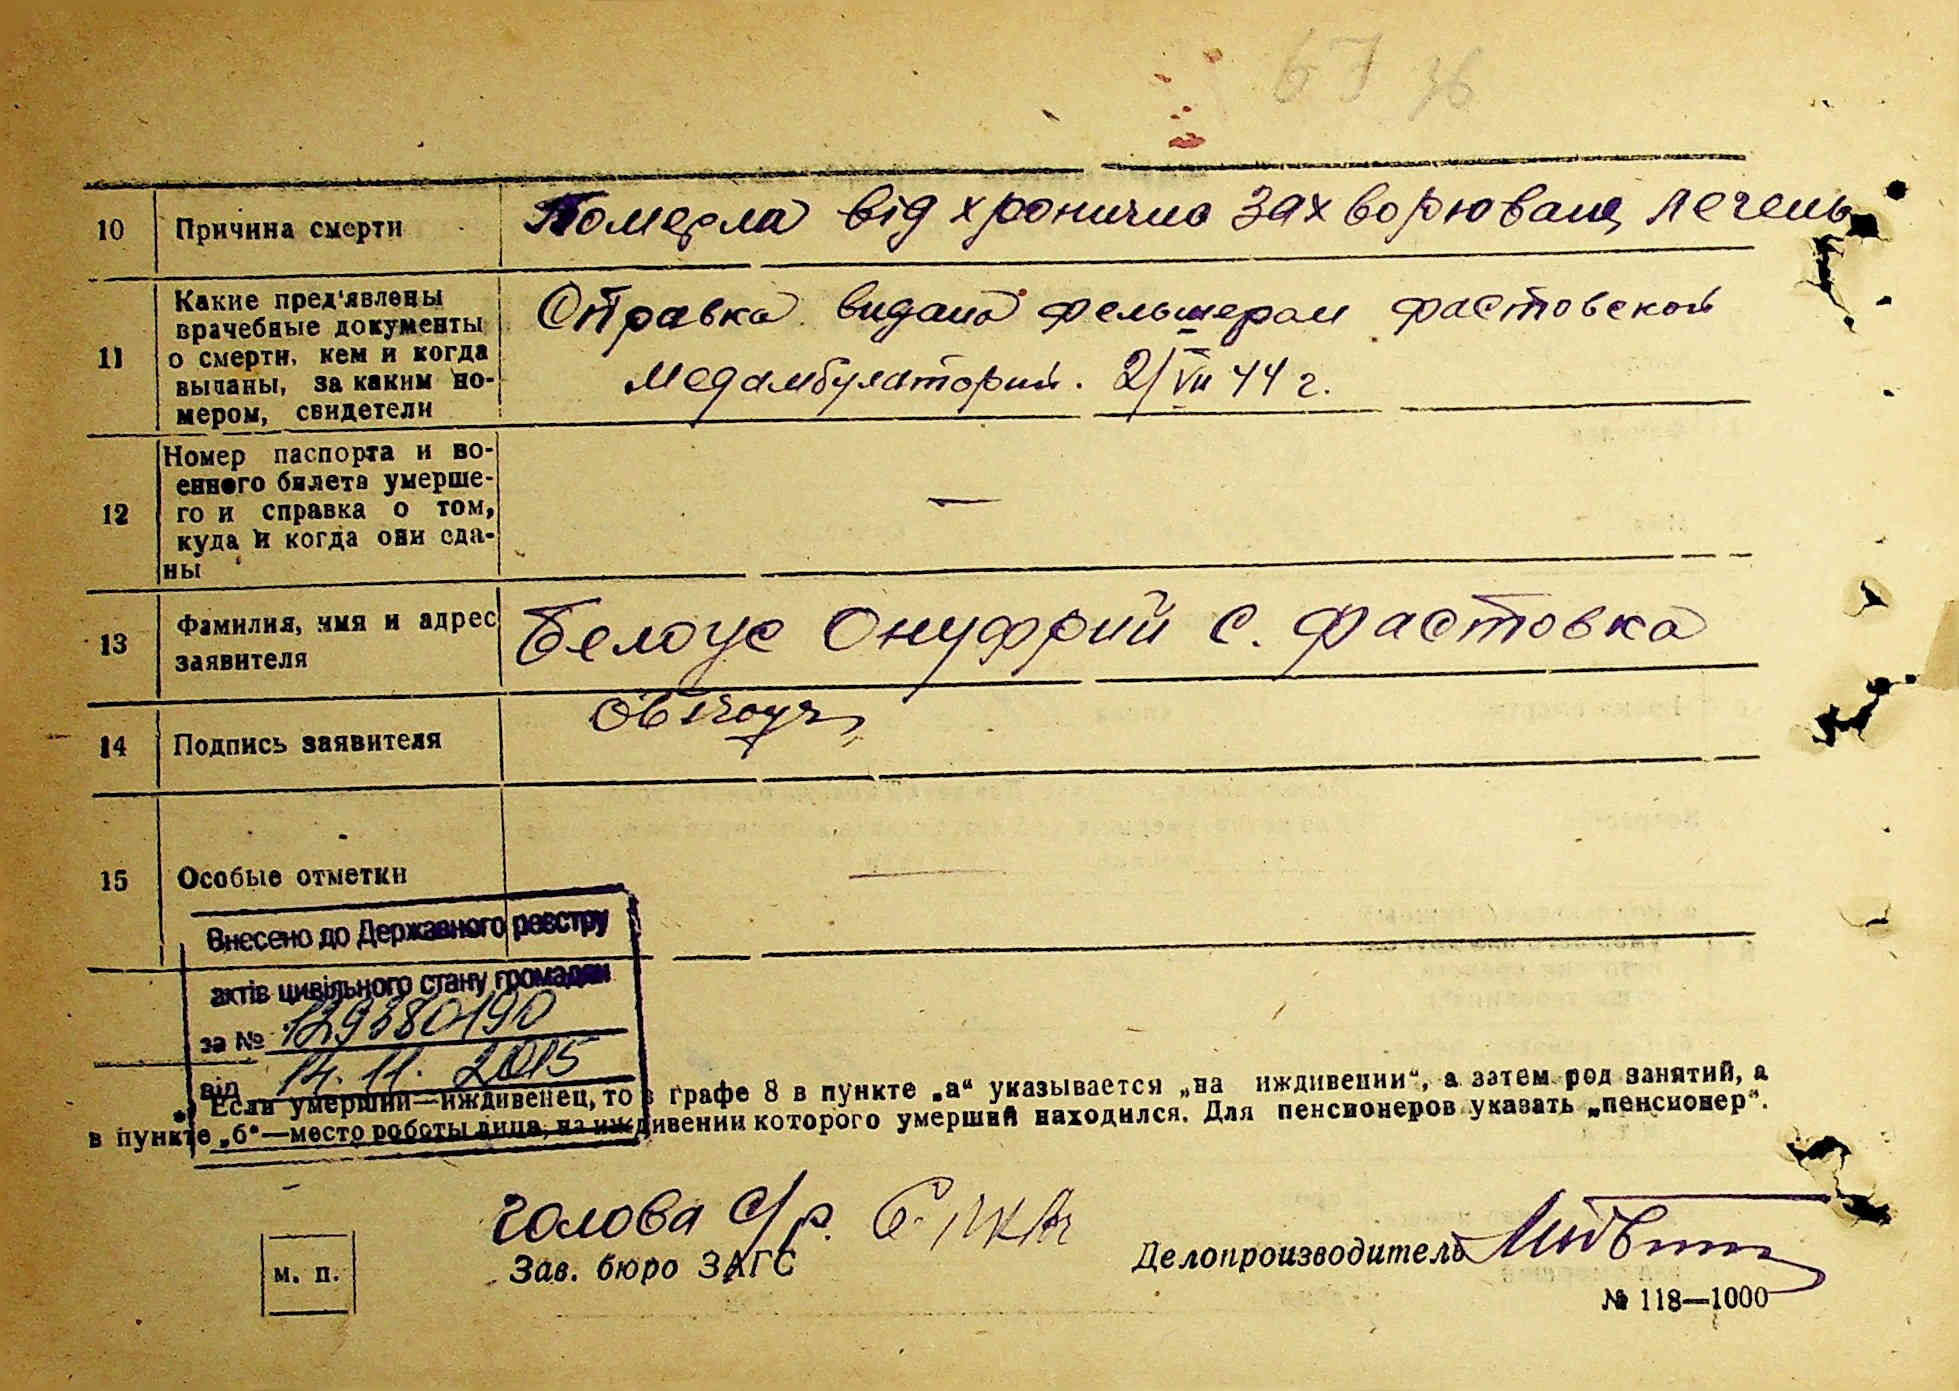 10 Причина смерти Померла від хронично захворюване печень
11 Какие пред'явлены
врачебные документы
о смерти, кем и когда
выданы, за каким но-
мером, свидетели
Справка видана фельшером Фастовской
Медамбулаторий. 2/VII 44 г.
12 Номер паспорта и во-
енного билета умерше-
го и справка о том,
куда и когда они сда-
ны
—
13 Фамилия, имя и адрес
заявителя
Белоус Онуфрий с. Фастовка
14 Подпись заявителя
15 Особые отметки
Внесено до Державного реєстру
актів цивільного стану громадян
за № 129380190
від 14. 11. 2015
*) Если умерший—иждивенец, то в графе 8 в пункте „а“ указывается „на иждивении“, а затем род занятий, а
в пункте „б“—место роботы лица, на иждивении которого умерший находился. Для пенсионеров указать „пенсионер“.
голова с/р.
Зав. бюро ЗАГС
Делопроизводитель
м. п.
№ 118—1000